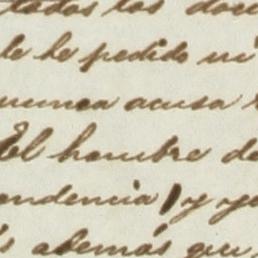 todos los docu
le he pedido ni
nunca acusa
El hombre de
endencia, y yo
s además que